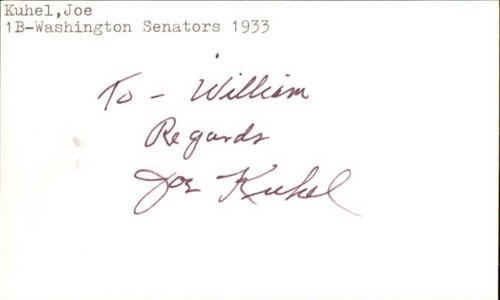 Kuhel,Joe
1B-Washington Senators 1933
To - William
Regards
Joe Kuhel